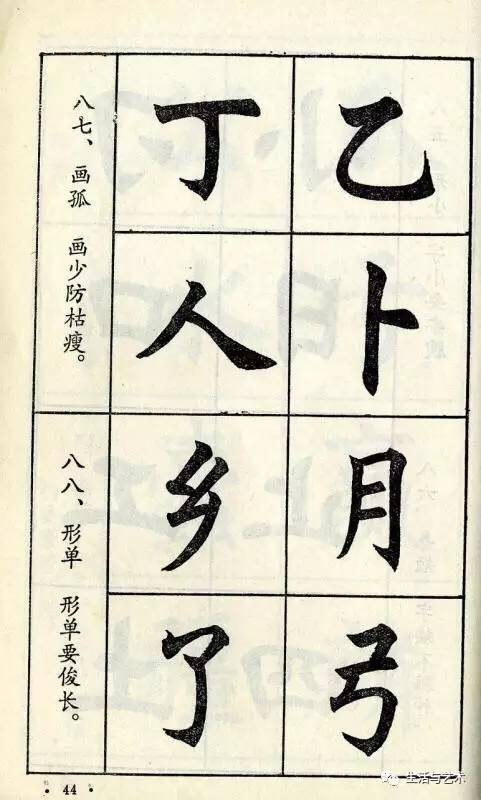 乙
卜
月
弓
丁
人
乡
了
八七、画孤 画少防枯瘦。
八八、形单 形单要俊长。
· 44 ·
生活与艺术